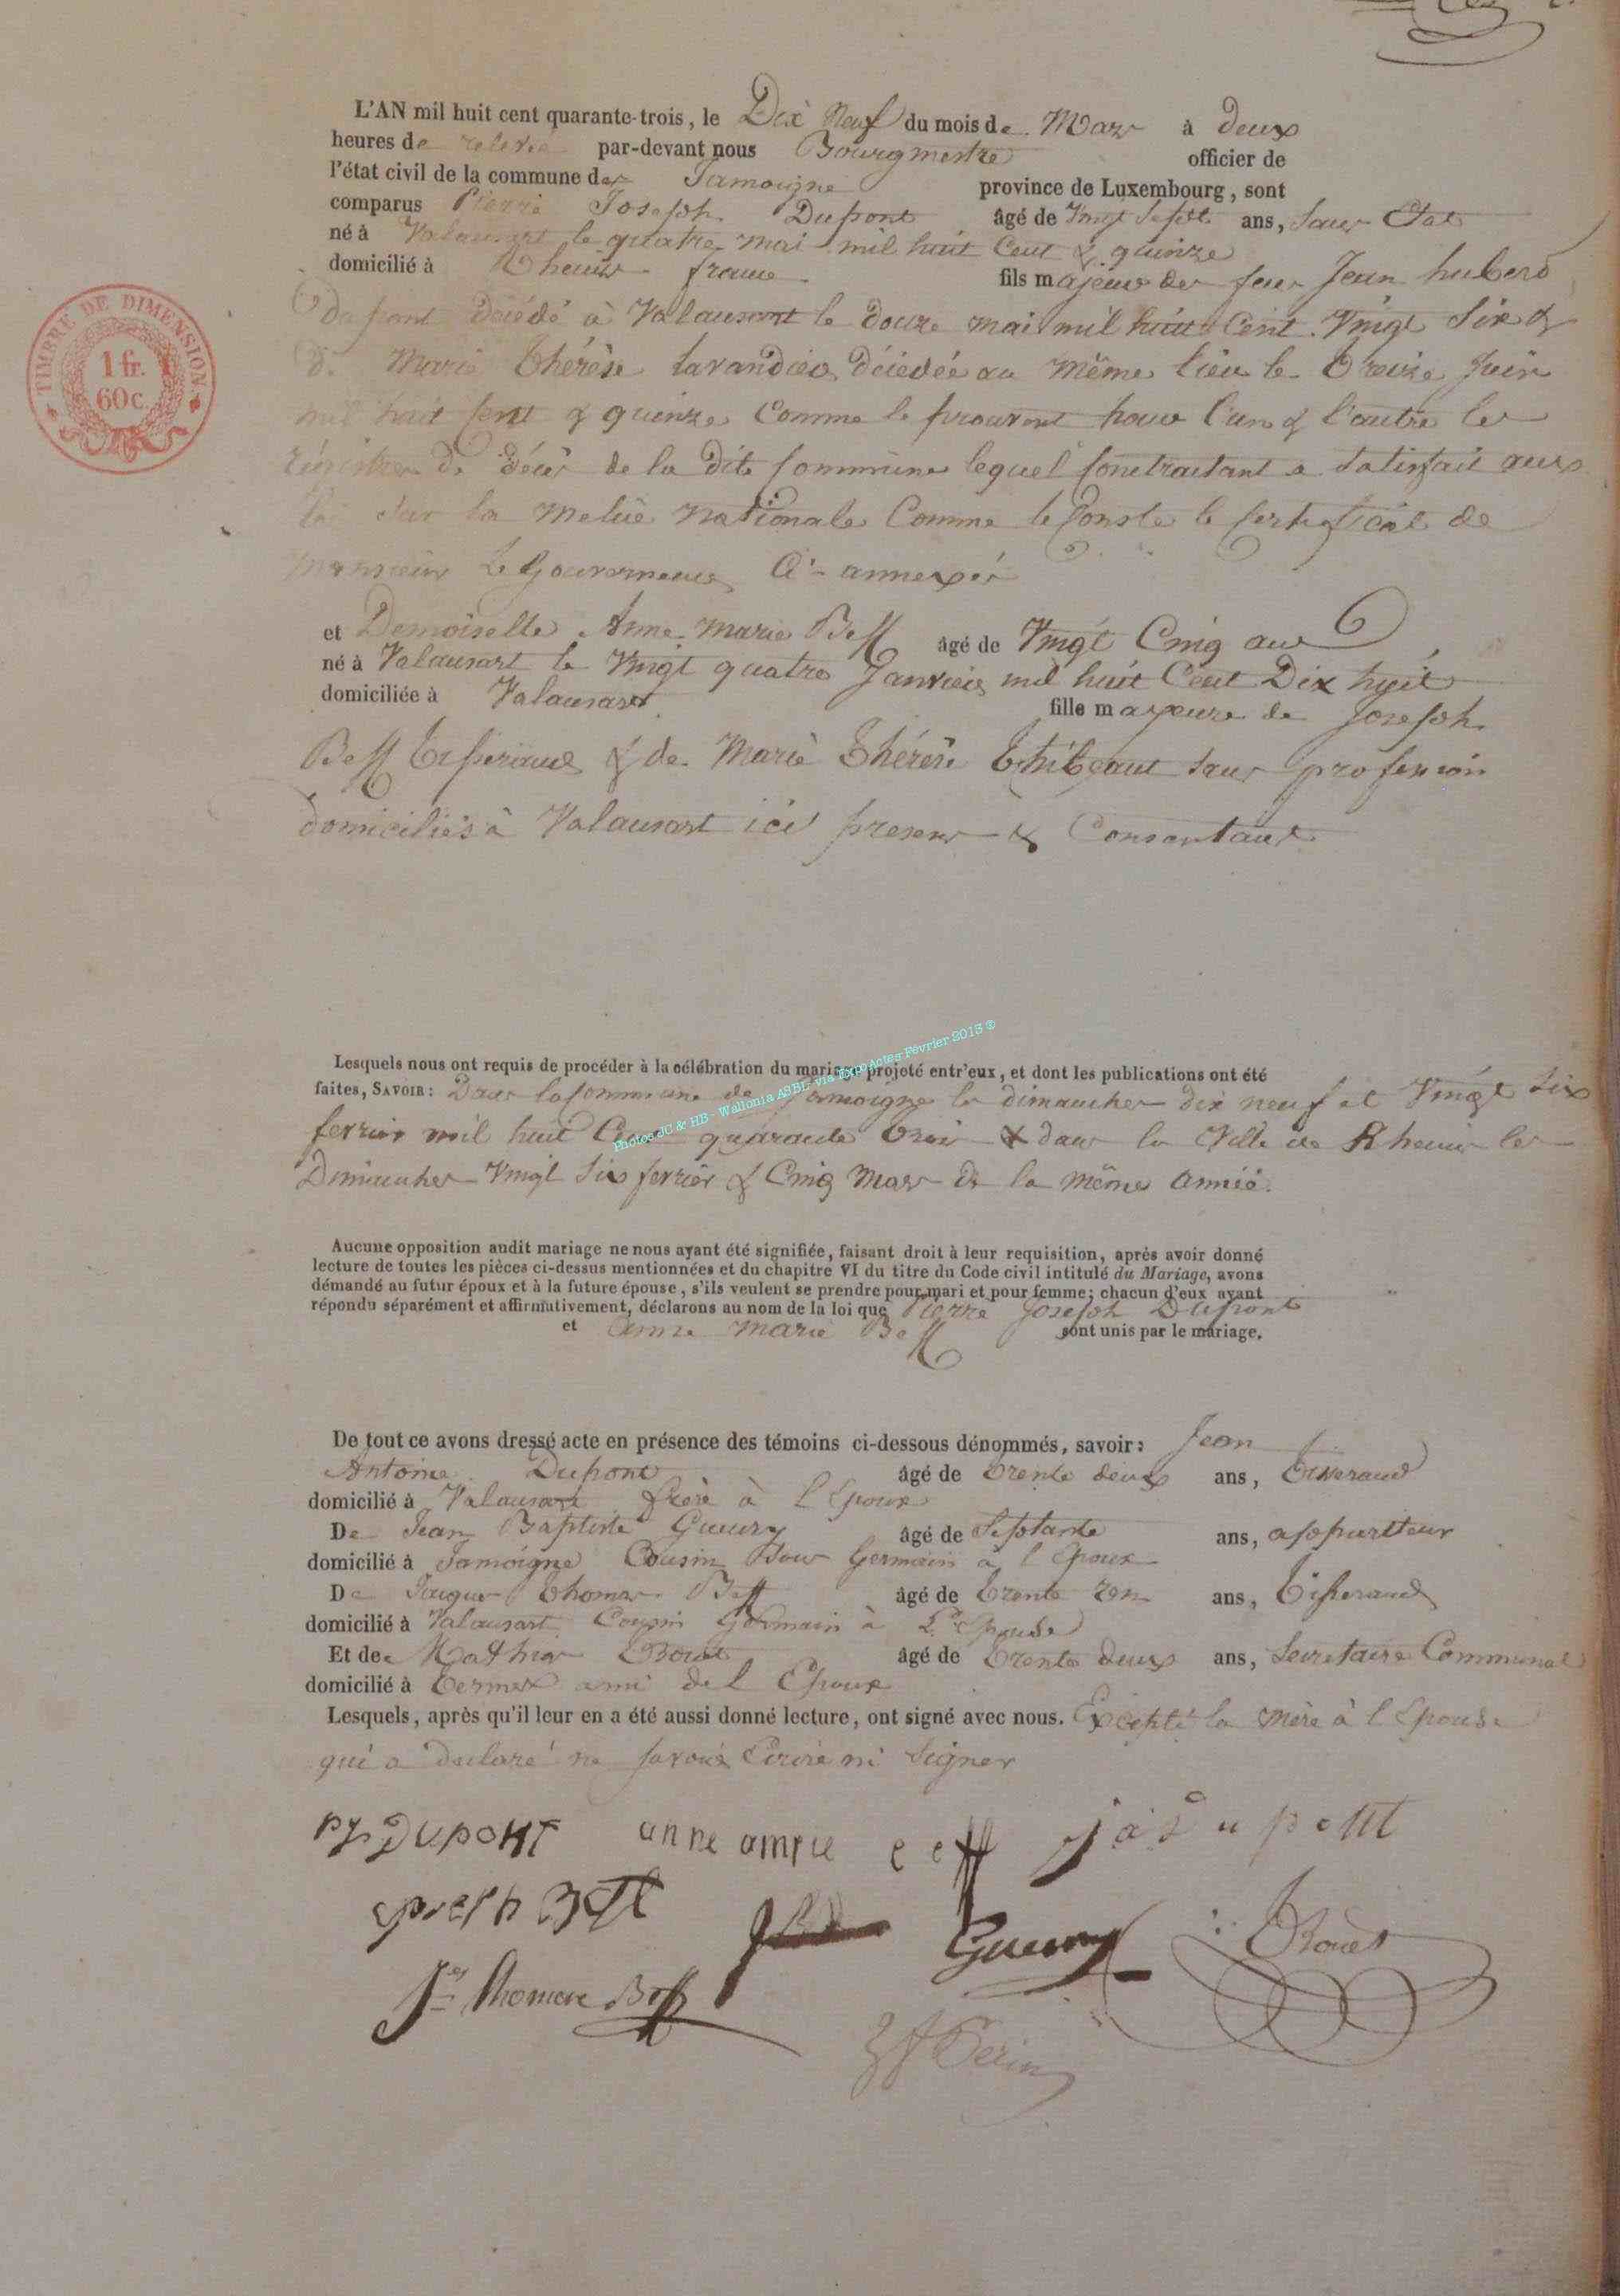 TIMBRE DE DIMENSION
1 fr.
60 c.
L'AN mil huit cent quarante-trois, le Dix Neuf du mois de Mars à deux
heures de relevée par-devant nous Bourgmestre officier de
l'état civil de la commune de Jamoigne province de Luxembourg, sont
comparus Pierre Joseph Dupont âgé de Vingt Sept ans, Sans Etat
né à Valansart le quatre mai mil huit Cent & quinze
domicilié à Rheims france fils majeur de feu Jean hubert
Dupont Décédé à Valansart le douze mai mil huit Cent Vingt Six &
de Marie Thérèse Lavandier Décédée au Même lieu le Treize Juin
mil huit Cent & quinze Comme le prouvent pour l'un & l'autre les
régistres de décès de la dite Commune lequel Contractant a Satisfait aux
Loi sur la Melice Nationale Comme le Conste le Certificat de
monsieur Le Gouverneur Ci-annexés
et Demoiselle Anne Marie Beff âgé de Vingt Cinq ans
né à Valansart le Vingt quatre Janvier mil huit Cent Dix huit
domiciliée à Valansart fille majeure de Joseph
Beff Tisserand & de Marie Thérèse Thibeaut Sans profession
domiciliés à Valansart ici presens & Consentant
Lesquels nous ont requis de procéder à la célébration du mariage projeté entr'eux, et dont les publications ont été
faites, SAVOIR: Dans la Commune de Jamoigne les dimanches dix neuf et Vingt Six
fevrier mil huit Cent quarante trois & dans la Ville de Rheims les
Dimanches Vingt Six fevrier & Cinq Mars de la même année.
Photos JC & HB - Wallonia ASBL via ExpoActes Février 2013 ®
Aucune opposition audit mariage ne nous ayant été signifiée, faisant droit à leur requisition, après avoir donné
lecture de toutes les pièces ci-dessus mentionnées et du chapitre VI du titre du Code civil intitulé du Mariage, avons
démandé au futur époux et à la future épouse, s'ils veulent se prendre pour mari et pour femme; chacun d'eux ayant
répondu séparément et affirmativement, déclarons au nom de la loi que Pierre Joseph Dupont
et Anne Marie Beff sont unis par le mariage.
De tout ce avons dressé acte en présence des témoins ci-dessous dénommés, savoir: Jean
Antoine Dupont âgé de trente deux ans, Tisserand
domicilié à Valansart frère à l'Epoux
De Jean Baptiste Gueury âgé de Septante ans, appariteur
domicilié à Jamoigne Cousin Sous Germain à l'Epoux
De Jaques Thomas Beff âgé de trente ans, Tisserand
domicilié à Valansart Cousin Germain à L'Epouse
Et de Mathieu âgé de trente deux ans, Secretaire Communal
domicilié à Termes ami de l'Epoux
Lesquels, après qu'il leur en a été aussi donné lecture, ont signé avec nous. Excepté la Mère à l'Epouse
qui a declaré ne Savoir Ecrire ni Signer
PJ DUPONT anne amrie eeff j a dupont
joseph Beff Gueury
Jes Thomas Beff
Perin